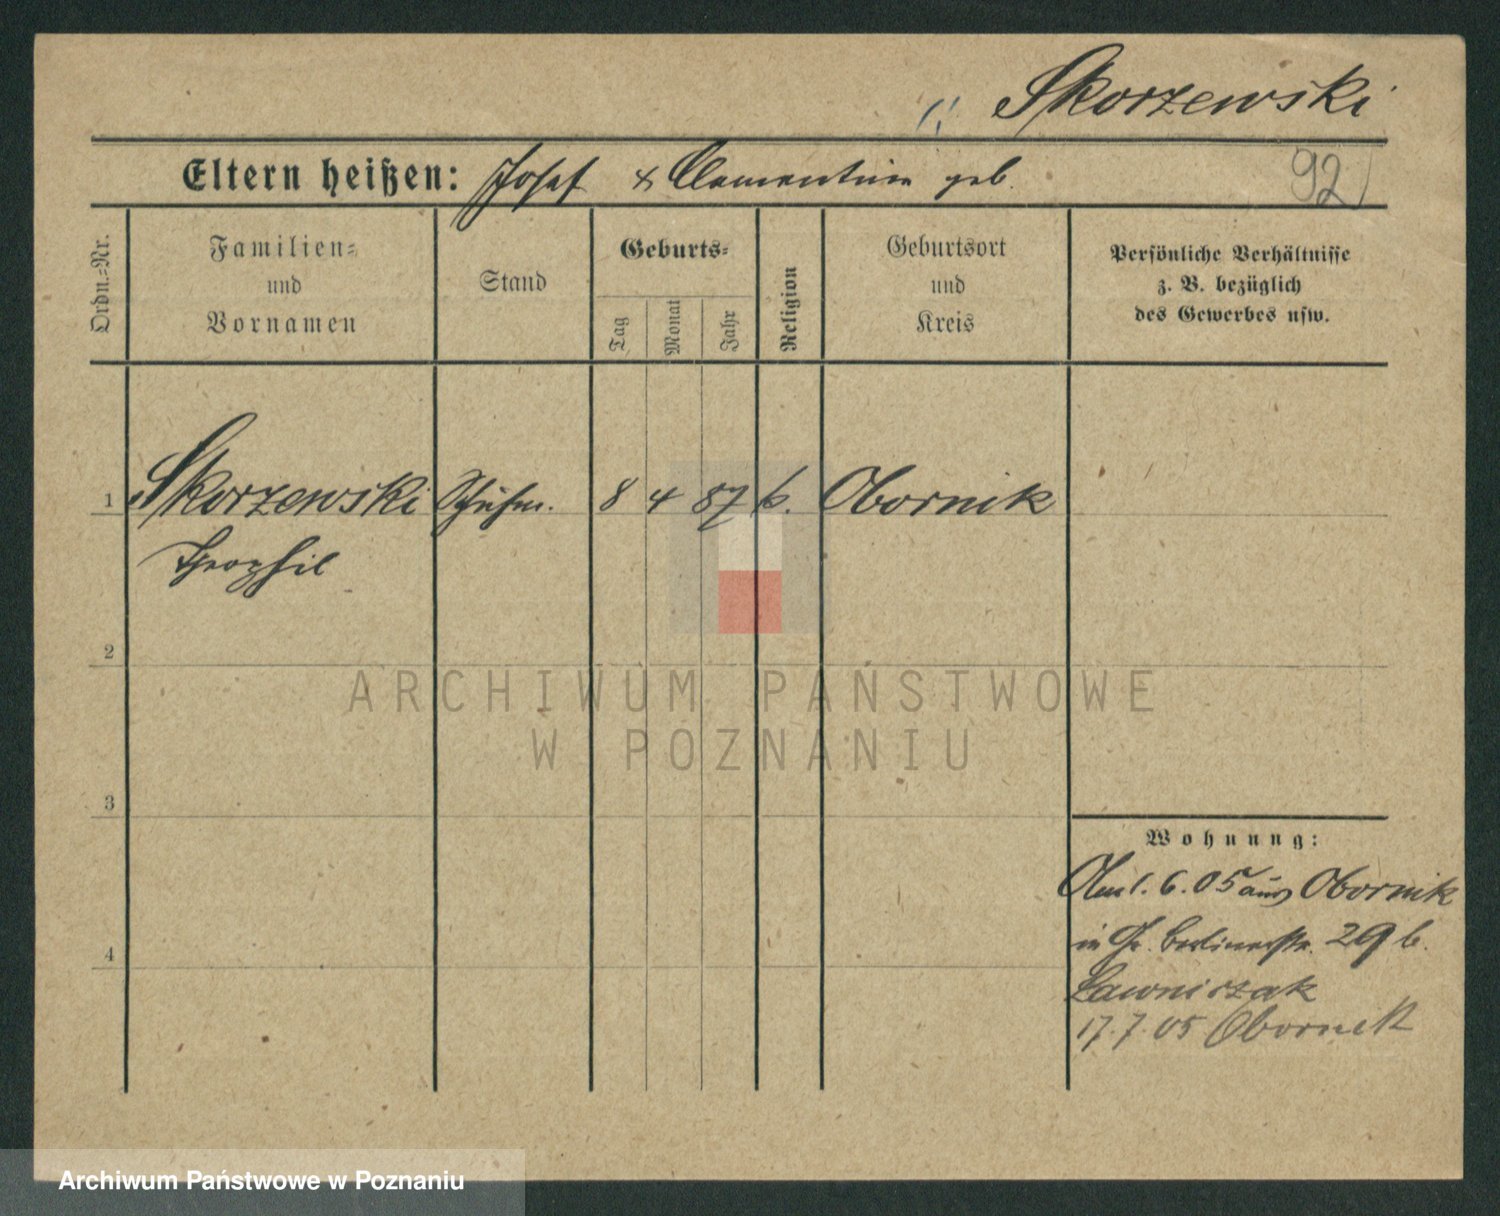 Skorzewski
Eltern heißen: Josef & Clementine geb.
92
Ordn.=Nr.
Familien=
und
Vornamen
Stand
Geburts=
Tag
Monat
Jahr
Religion
Geburtsort
und
Kreis
Persönliche Verhältnisse
z. B. bezüglich
des Gewerbes usw.
1 Skorzewski Schuhm. 8 4 87 k. Obornik
Theophil
2
ARCHIWUM PAŃSTWOWE
W POZNANIU
3
Wohnung:
Am 1. 6. 05 aus Obornik
in Gr. Berlinerstr. 29 b.
4
Lawniczak
17. 7. 05 Obornik
Archiwum Państwowe w Poznaniu